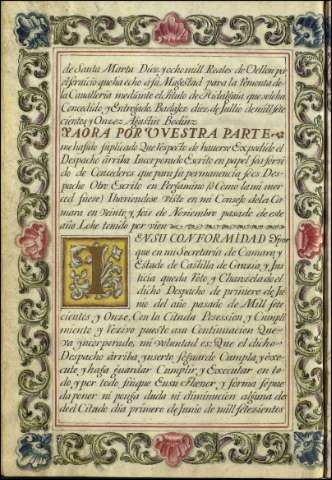 de Santa Marta Diez, y ocho mill Reales de Vellon por
el servicio que ha echo a su Magestad para la Remonta de
la Cavalleria mediante el titulo de Hidalguia que se le ha
Concedido, y Entregado. Badajoz diez, de Jullio de mill sete
cientos, y Onze Agustin Bedunz
YAORA POR VUESTRA PARTE
me ha sido suplicado Que respecto de haverse Expedido el
Despacho arriba Incorporado Escrito en papel sea servi
do de Concederos que para su permanencia se os Des
pache Otro Escrito en Pergamino (o Como la mi mer
ced fuese) Y haviendose visto en mi Consejo de la Ca
mara en Veinte, y seis de Noviembre pasado de este
año, Lo he tenido por vien
I EN SU CONFORMIDAD Y por
que en mi Secretaria de Camara y
Estado de Castilla de Gracia, y Jus
ticia queda Roto, y Chanzelado el
dicho Despacho de primero de Ju
nio del año pasado de Mill sete
cientos, y Onze, Con la Citada Posesion, y Cumpli
miento, y Rezivo puesto a su Continuacion Que
va ynCorporado, mi voluntad es: Que el dicho
Despacho arriba ynserto se Guarde Cumpla, y exe
cute, y haga guardar Cumplir, y Executar en to
do, y por todo sin que En su thenor, y forma se pue
da poner ni ponga duda ni diminucion alguna des
de el Citado dia primero de Junio de mill setezientos